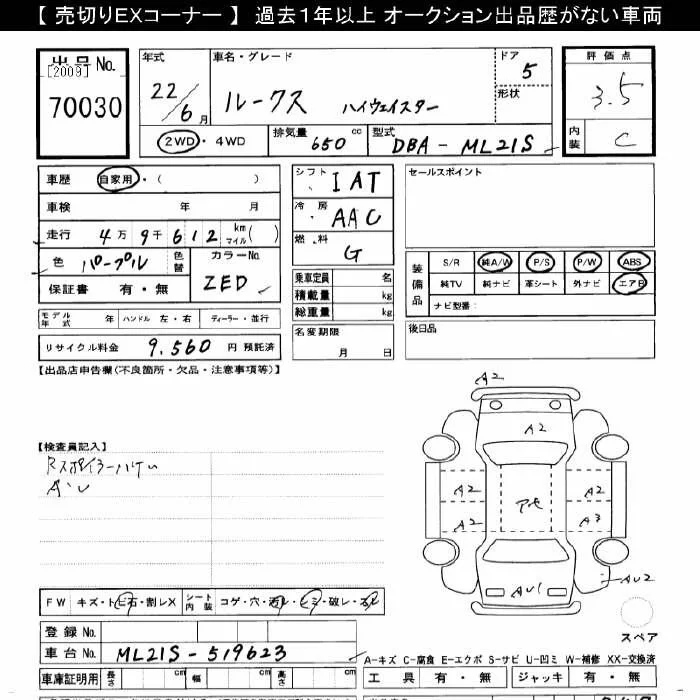 【 売切りEXコーナー 】 過去1年以上 オークション出品歴がない車両
出品No.
[2009]
70030
年式
22/6月
車名・グレード
ルークス ハイウェイスター
ドア
5
形状
評価点
3.5
内装
C
2WD・4WD
排気量
650 cc
型式
DBA-ML21S
車歴 自家用・( )
車検 年 月
走行 4万9千612 km マイル( )
色 パープル 色替
カラーNo.
ZED
保証書 有・無
シフト
IAT
冷房
AAC
燃料
G
乗車定員 名
積載量 kg
総重量 kg
名変期限
月 日
セールスポイント
装備品
S/R 純A/W P/S P/W ABS
純TV 純ナビ 革シート 外ナビ エアB
ナビ型番:
後日品
モデル年式 年 ハンドル 左・右 ディーラー・並行
リサイクル料金 9.560 円 預託済
【出品店申告欄(不良箇所・欠品・注意事項等)】
【検査員記入】
A・U
A2
A2
A2
A2
アセ
A2
A3
AU1
AU2
スペア
FW キズ・トビ石・割レX
シート内装 コゲ・穴・汚レ・シミ・破レ・スレ
登録No.
車台No. ML21S-519623
車庫証明用 長さ 幅 高さ
A-キズ C-腐食 E-エクボ S-サビ U-凹ミ W-補修 XX-交換済
工具 有・無 ジャッキ 有・無